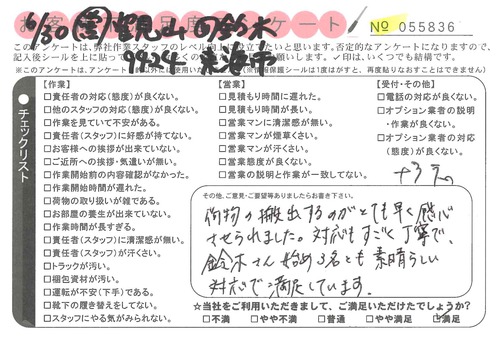 お客 足度 ケート № 055836
6/30 観山の鈴木
9424 東海市
このアンケートは、弊社作業スタッフのレベル向上に役立てたいと思います。否定的なアンケートになりますので、
記入後シールを上に貼って いつでも結構です。
【作業】
□責任者の対応(態度)が良くない。
□他のスタッフの対応(態度)が良くない。
□作業を見ていて不安がある。
□責任者(スタッフ)に好感が持てない。
□お客様への挨拶が出来ていない。
□ご近所への挨拶・気遣いが無い。
□作業開始前の内容確認がなかった。
□作業開始時間が遅れた。
□荷物の取り扱いが雑である。
□お部屋の養生が出来ていない。
□作業時間が長すぎる。
□責任者(スタッフ)に清潔感が無い。
□責任者(スタッフ)が汗くさい。
□トラックが汚い。
□梱包資材が汚い。
□運転が不安(下手)である。
□靴下の履き替えをしてない。
□スタッフにやる気がみられない。
【営業】
□見積もり時間に遅れた。
□見積もり時間が長い。
□営業マンに清潔感が無い。
□営業マンが煙草くさい。
□営業マンが汗くさい。
□営業態度が良くない。
□営業の説明と作業が一致してない。
【受付・その他】
□電話の対応が良くない。
□オプション業者の説明
・作業が良くない。
□オプション業者の対応
(態度)が良くない。
チェックリスト
その他、ご意見・ご要望等ありましたらお書き下さい。
荷物の搬出するのがとても早く感心
させられました。対応もすごく丁寧で、
鈴木さん始め3名とも素晴らしい
対応で満足しています。
☆当社をご利用いただきまして、ご満足いただけたでしょうか?
□不満 □やや不満 □普通 □やや満足 ☑満足